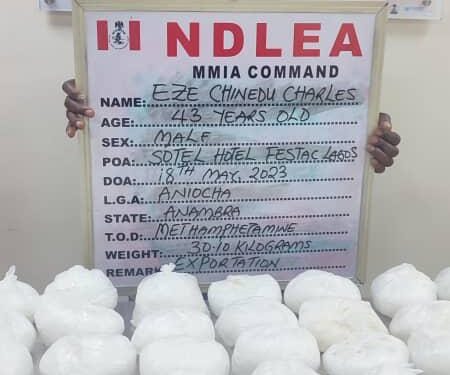 NDLEA
MMIA COMMAND
NAME: EZE CHINEDU CHARLES
AGE: 43 YEARS OLD
SEX: MALE
POA: SOTEL HOTEL FESTAC LAGOS
DOA: 18TH MAY, 2023
L.G.A: ANIOCHA
STATE: ANAMBRA
T.O.D: METHAMPHETAMINE
WEIGHT: 30.10 KILOGRAMS
REMARK: EXPORTATION